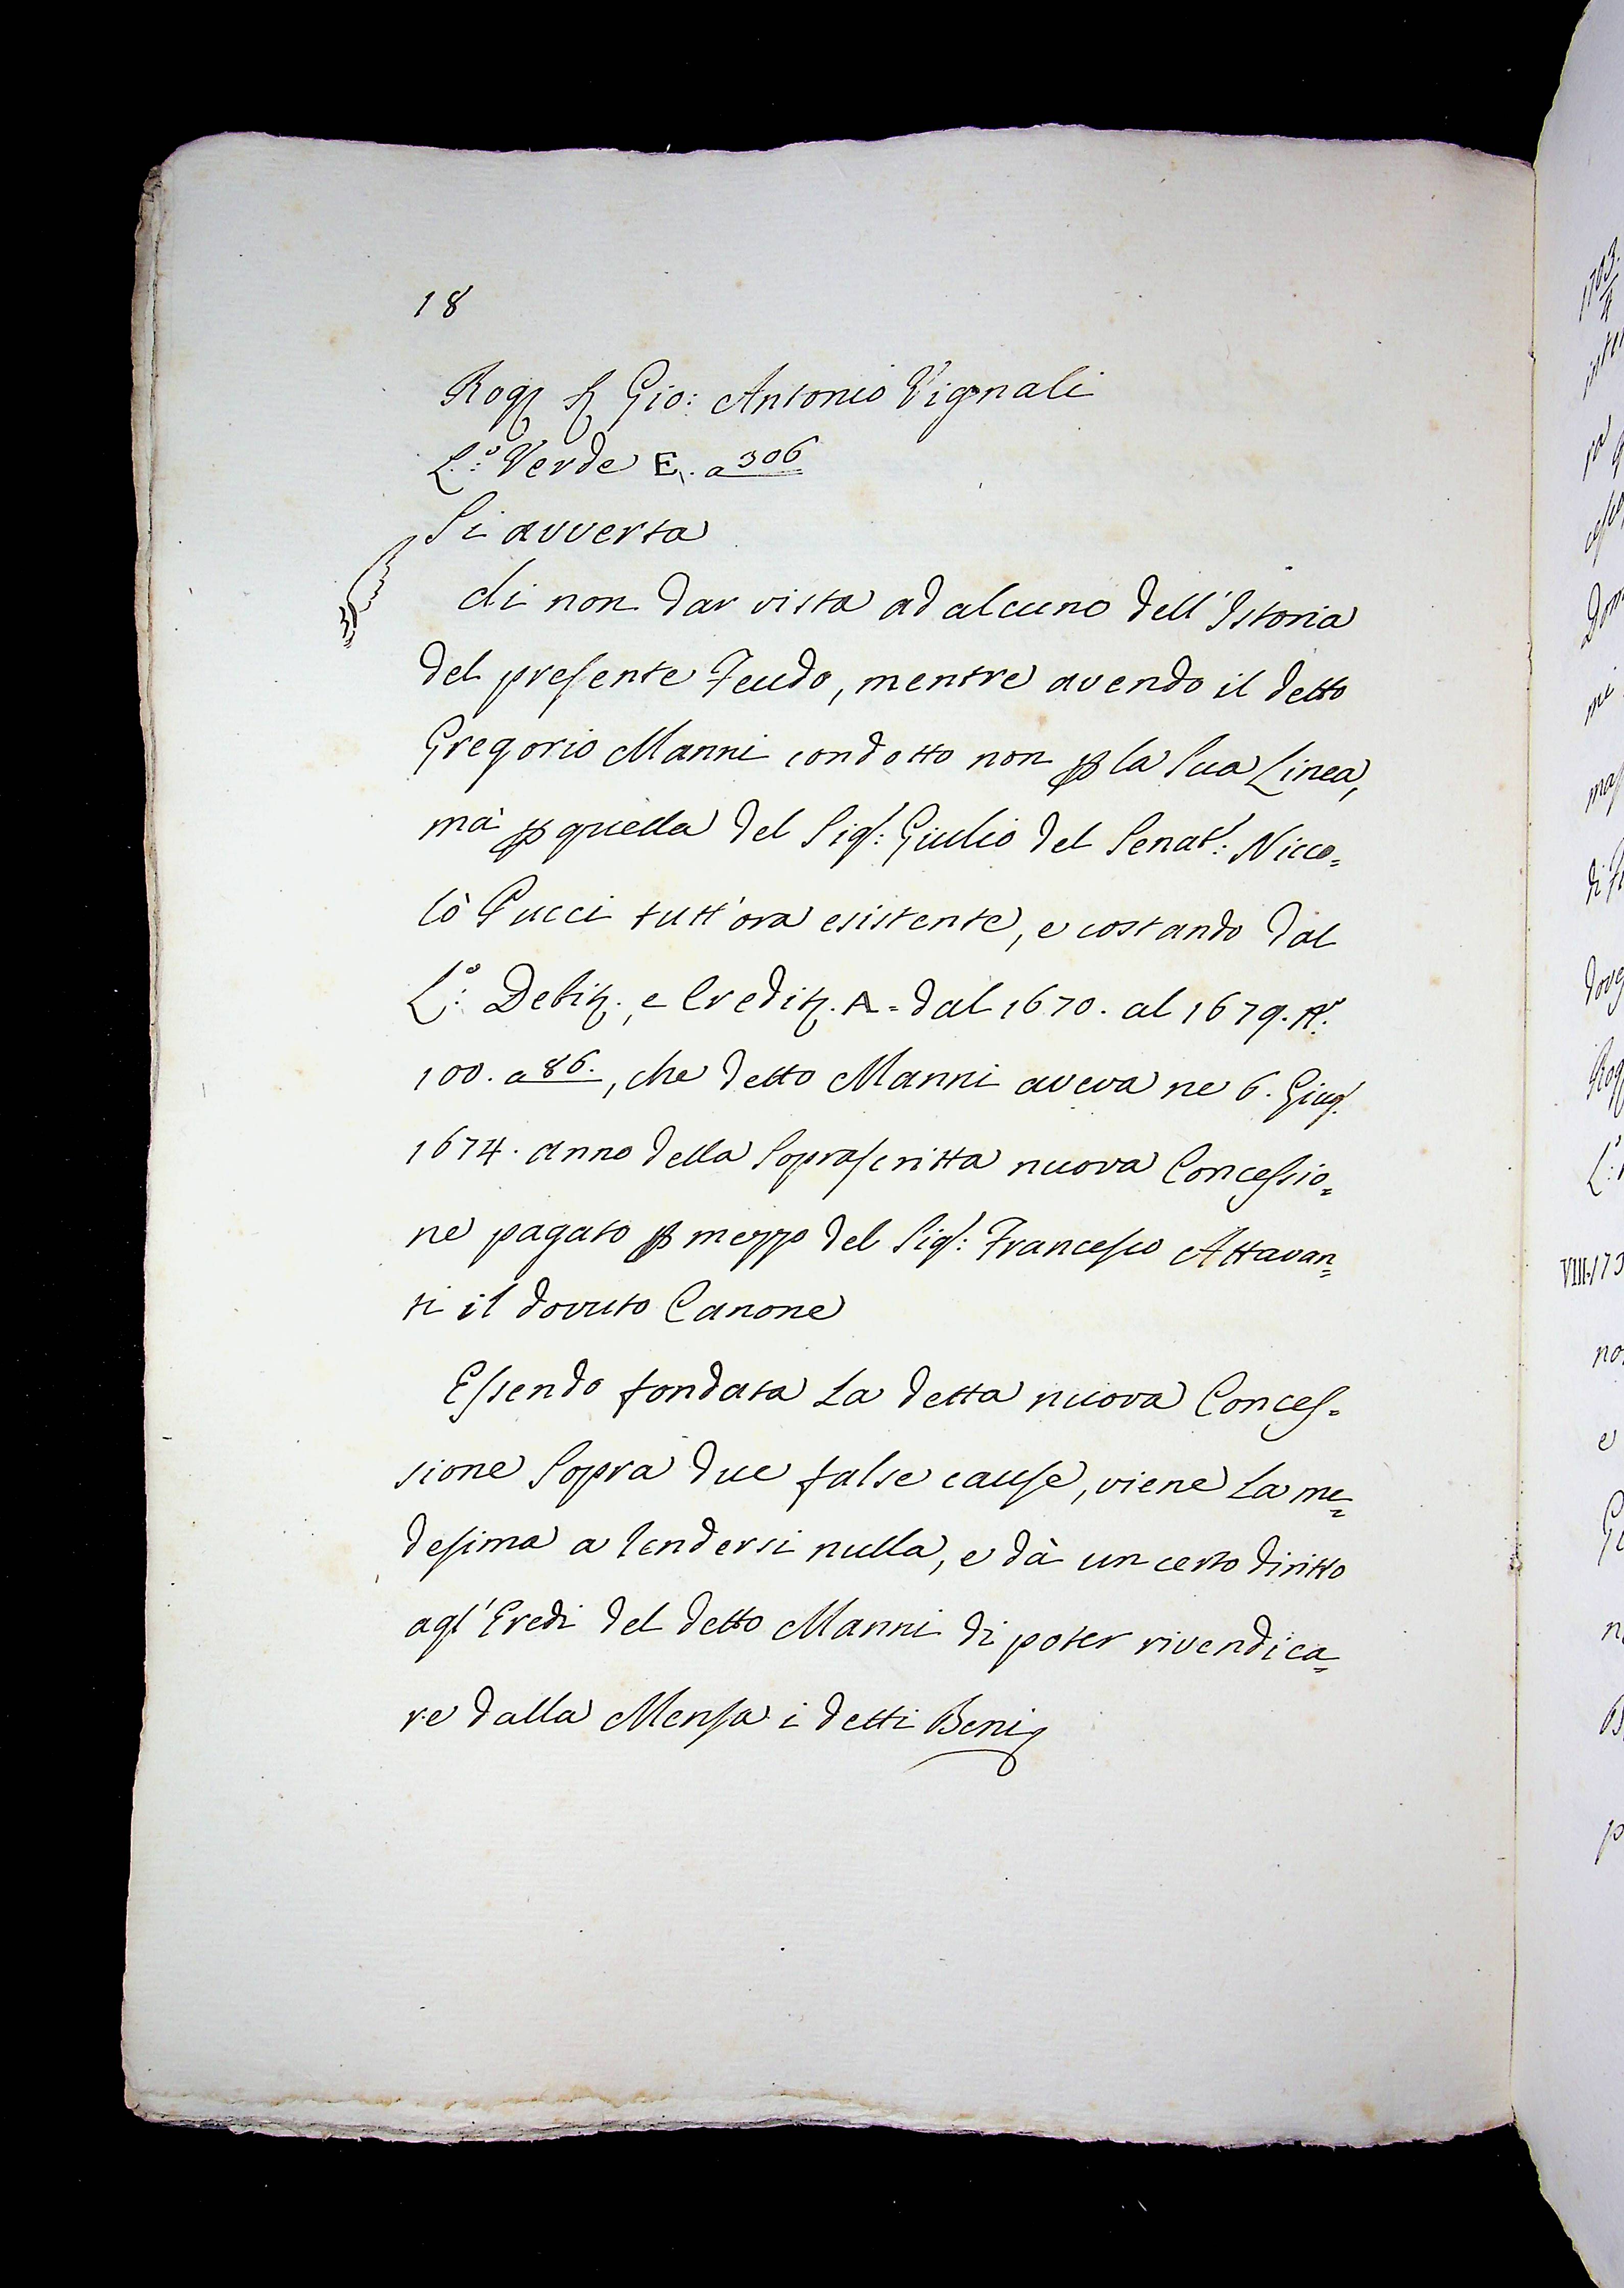 18
Rog. Sr Gio: Antonio Vignali
L.º Verde E. a 306
Si avverta
di non dar vista ad alcuno dell'Istoria
del presente Feudo, mentre avendo il detto
Gregorio Manni condotto non p la Sua Linea,
mà p quella del Sigr: Giulio del Senatr: Nicco=
lò Pucci tutt'ora esistente, e costando dal
L.º Debit., e Credit. A= dal 1670. al 1679.
100. a 86., che detto Manni aveva ne 6. Giug.
1674. anno della Soprascritta nuova Concessio=
ne pagato p mezzo del Sigr: Francesco Attavan=
ti il dovuto Canone
Essendo fondata La detta nuova Conces=
sione Sopra due false cause, viene La me=
desima a rendersi nulla, e dà un certo diritto
agl'Eredi del detto Manni di poter rivendica=
re dalla Mensa i detti Beni
1703.
Dom
mi
mas
Rog
VIII.173
no
e
n
p